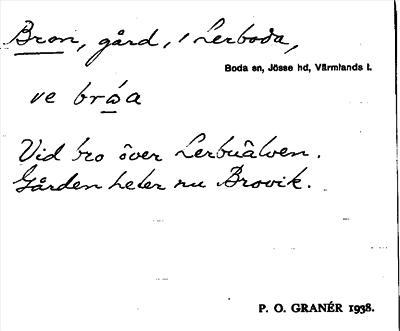 Bron, gård, i Lerboda,
Boda sn, Jösse hd, Värmlands l.
ve bråa
Vid bro över Lerbuälven.
Gården heter nu Brovik.
P. O. GRANÉR 1938.